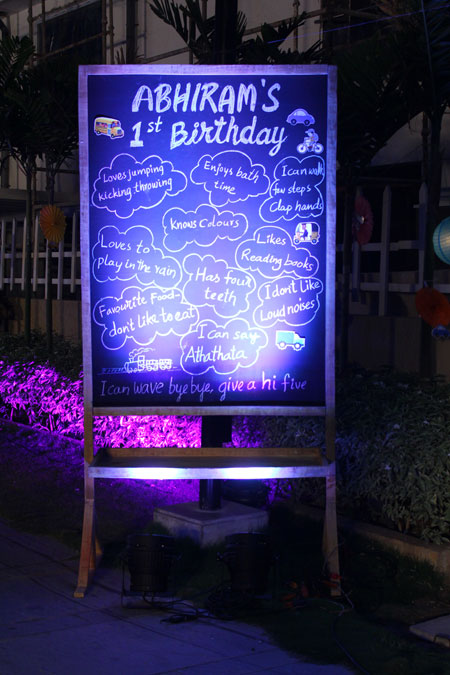 ABHIRAM'S
1st Birthday
Loves Jumping
kicking throwing
Enjoys bath
time
I can walk
few steps
Clap hands
Knows Colours
Loves to
play in the rain
Likes
Reading books
I Has four
teeth
Favourite Food-
dont like to eat
I dont Like
Loud noises
I can say
Athathata
I can wave bye bye, give a hi five